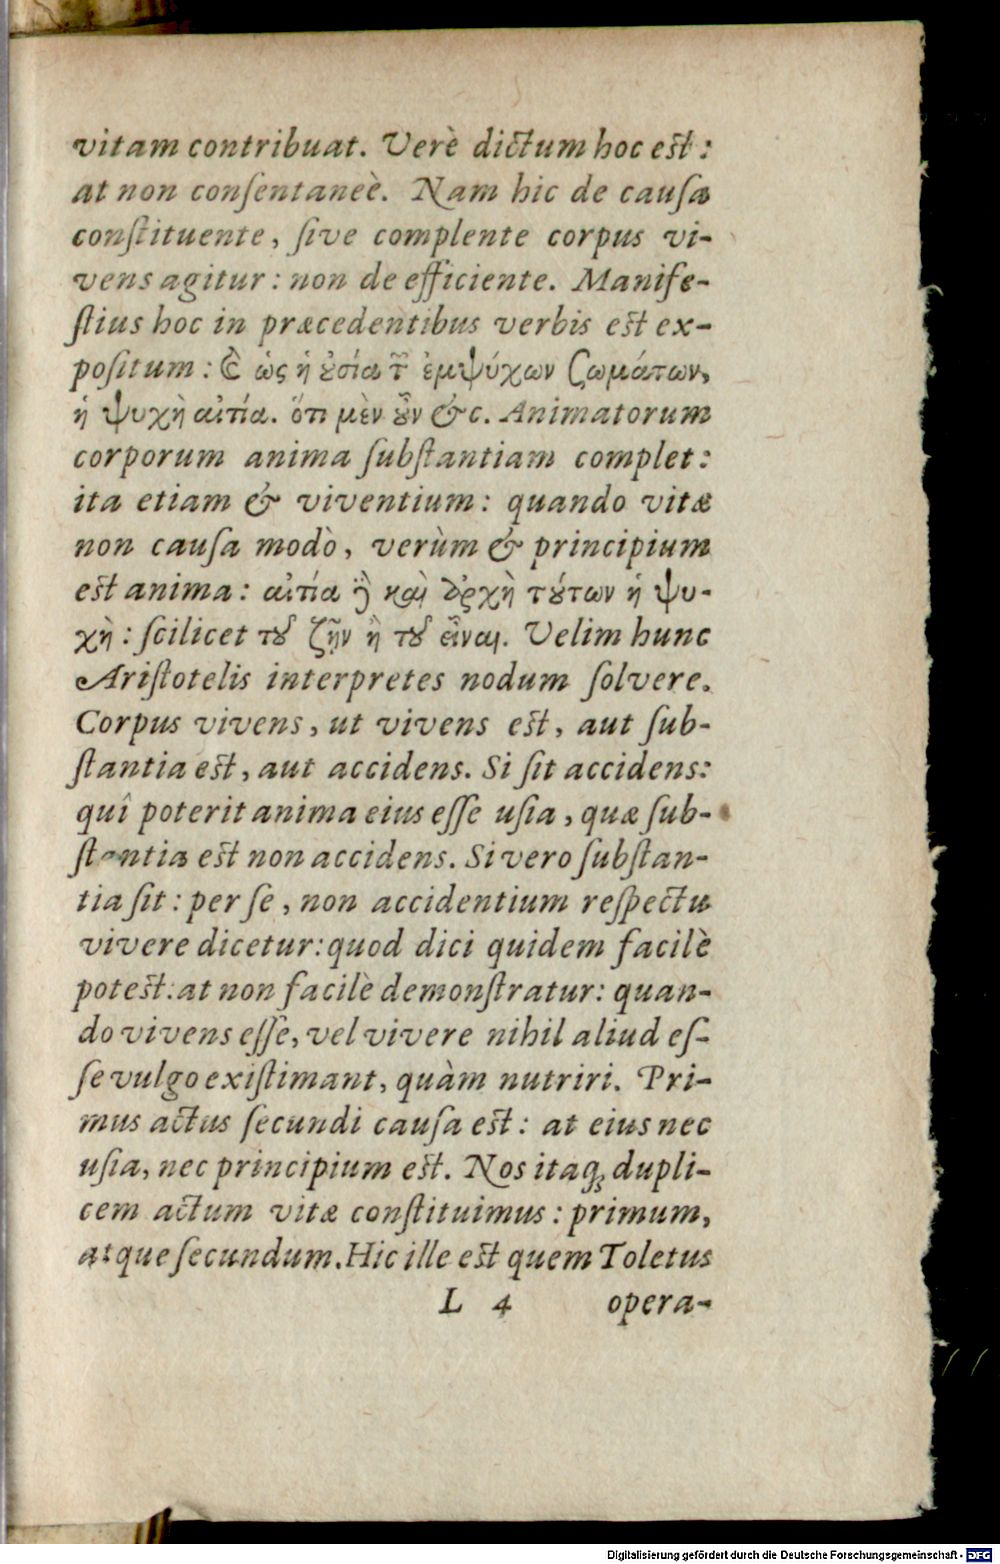 vitam contribuat. Verè dictum hoc est:
at non conſentaneè. Nam hic de cauſa
conſtituente, ſive complente corpus vi-
vens agitur: non de efficiente. Manife-
ſtius hoc in præcedentibus verbis est ex-
poſitum: ὡς ἡ ȣ̓σία τ͂ ἐμψύχων ζωμάτων,
ἡ ψυχὴ αἰτία. ὅτι μὲν ȣ̓͂ν &c. Animatorum
corporum anima ſubſtantiam complet:
ita etiam & viventium: quando vitæ
non cauſa modò, verùm & principium
est anima: αἰτία καὶ ἀρχὴ τȣ́των ἡ ψυ-
χὴ: ſcilicet τȣ͂ ζῆν ἢ τȣ͂ εἶναι. Velim hunc
Ariſtotelis interpretes nodum ſolvere.
Corpus vivens, ut vivens est, aut ſub-
ſtantia est, aut accidens. Si ſit accidens:
quî poterit anima eius eſſe uſia, quæ ſub-
ſtantia est non accidens. Si vero ſubſtan-
tia ſit: per ſe, non accidentium reſpectu
vivere dicetur: quod dici quidem facilè
potest: at non facilè demonſtratur: quan-
do vivens eſſe, vel vivere nihil aliud eſ-
ſe vulgo exiſtimant, quàm nutriri. Pri-
mus actus ſecundi cauſa est: at eius nec
uſia, nec principium est. Nos itaq; dupli-
cem actum vitæ conſtituimus: primum,
atque ſecundum. Hic ille est quem Toletus
L 4 opera-
Digitalisierung gefördert durch die Deutsche Forschungsgemeinschaft - DFG